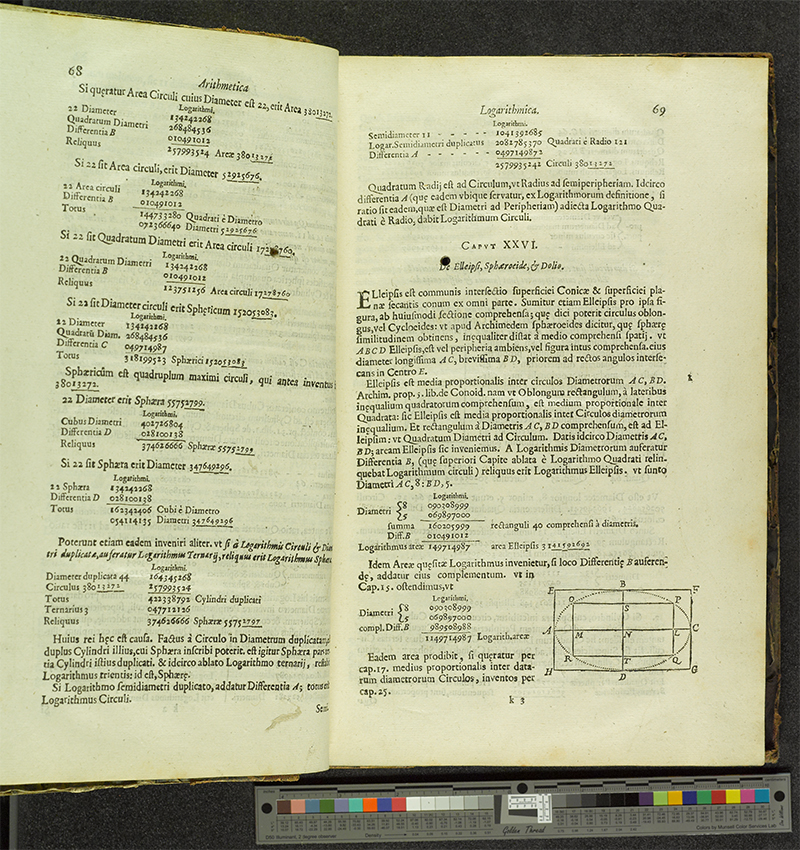 68
Arithmetica
Si quęratur Area Circuli cuius Diameter est 22, erit Area 38013272.
Logarithmi.
22 Diameter 134242268
Quadratum Diametri 268484536
Differentia B 010491012
Reliquus 257993524 Areæ 38013272
Si 22 sit Area circuli, erit Diameter 52925676.
Logarithmi.
22 Area circuli 134242268
Differentia B 010491012
Totus 144733280 Quadrati è Diametro
072366640 Diametri 52925676
Si 22 sit Quadratum Diametri erit Area circuli 17278760.
Logarithmi.
22 Quadratum Diametri 134242268
Differentia B 010491012
Reliquus 123751256 Area circuli 17278760
Si 22 sit Diameter circuli erit Sphęricum 152053083.
Logarithmi.
22 Diameter 134242268
Quadratū Diam. 268484536
Differentia C 049714987
Totus 318199523 Sphærici 152053083
Sphæricum est quadruplum maximi circuli, qui antea inventus
38013272.
22 Diameter erit Sphæra 55752799.
Logarithmi.
Cubus Diametri 402726804
Differentia D 028100138
Reliquus 374626666 Sphæræ 55752799
Si 22 sit Sphæra erit Diameter 347649296.
Logarithmi.
22 Sphæra 134242268
Differentia D 028100138
Totus 162342406 Cubi è Diametro
054114135 Diametri 347649296
Poterunt etiam eadem inveniri aliter. vt si à Logarithmis Circuli &
tri duplicatæ, auferatur Logarithmus Ternarij, reliquus erit Logarithmus
Logarithmi.
Diameter duplicata 44 164345268
Circulus 38013272 257993524
Totus 422338792 Cylindri duplicati
Ternarius 3 047712126
Reliquus 374626666 Sphæræ 55752797
Huius rei hęc est causa. Factus à Circulo in Diametrum duplicatam,
duplus Cylindri illius, cui Sphæra inscribi poterit. est igitur Sphæra
tia Cylindri istius duplicati. & idcirco ablato Logarithmo ternarij,
Logarithmus trientis: id est, Sphæræ.
Si Logarithmo semidiametri duplicato, addatur Differentia A; totus
Logarithmus Circuli.
Logarithmica. 69
Logarithmi.
Semidiameter 11 - - - - - 1041392685
Logar. Semidiametri duplicatus 2082785370 Quadrati è Radio 121
Differentia A - - - - - - 0497149872
2579935242 Circuli 38013272
Quadratum Radij est ad Circulum, vt Radius ad semiperipheriam. Idcirco
differentia A (quę eadem vbique servatur, ex Logarithmorum definitione, si
ratio sit eadem, quæ est Diametri ad Peripheriam) adiecta Logarithmo Qua-
drati è Radio, dabit Logarithmum Circuli.
CAPVT XXVI.
De Elleipsi, Sphæroeide, & Dolio.
ELleipsis est communis intersectio superficiei Conicæ & superficiei pla-
næ secantis conum ex omni parte. Sumitur etiam Elleipsis pro ipsa fi-
gura, ab huiusmodi sectione comprehensa; quę dici poterit circulus oblon-
gus, vel Cycloeides: vt apud Archimedem sphæroeides dicitur, quę sphærę
similitudinem obtinens, inequaliter distat à medio comprehensi spatij. vt
ABCD Elleipsis, est vel peripheria ambiens, vel figura intus comprehensa. eius
diameter longissima AC, brevissima BD, priorem ad rectos angulos interse-
cans in Centro E.
Elleipsis est media proportionalis inter circulos Diametrorum AC, BD.
Archim. prop. 5. lib. de Conoid. nam vt Oblongum rectangulum, à lateribus
inequalium quadratorum comprehensum, est medium proportionale inter
Quadrata: sic Elleipsis est media proportionalis inter Circulos diametrorum
inequalium. Et rectangulum à Diametris AC, BD comprehensum, est ad El-
leipsim: vt Quadratum Diametri ad Circulum. Datis idcirco Diametris AC,
BD; aream Elleipsis sic inveniemus. A Logarithmis Diametrorum auferatur
Differentia B, (quę superiori Capite ablata è Logarithmo Quadrati relin-
quebat Logarithmum circuli) reliquus erit Logarithmus Elleipsis. vt sunto
Diametri AC, 8: BD, 5.
Logarithmi.
Diametri { 8 090308999
5 069897000
summa 160205999 rectanguli 40 comprehensi à diametris.
Diff. B 010491012
Logarithmus areæ 149714987 area Elleipsis 3141592692
Idem Areæ quęsitæ Logarithmus invenietur, si loco Differentię B auferen-
dę, addatur eius complementum. vt in
Cap. 15. ostendimus, vt
Logarithmi.
Diametri { 8 090308999
5 069897000
compl. Diff. B 989508988
1149714987 Logarith. areæ
Eadem area prodibit, si quęratur per
cap. 17. medius proportionalis inter data-
rum diametrorum Circulos, inventos per
cap. 25.
E B F
O S P
A M N L C
R T Q
H D G
k 3
Golden Thread